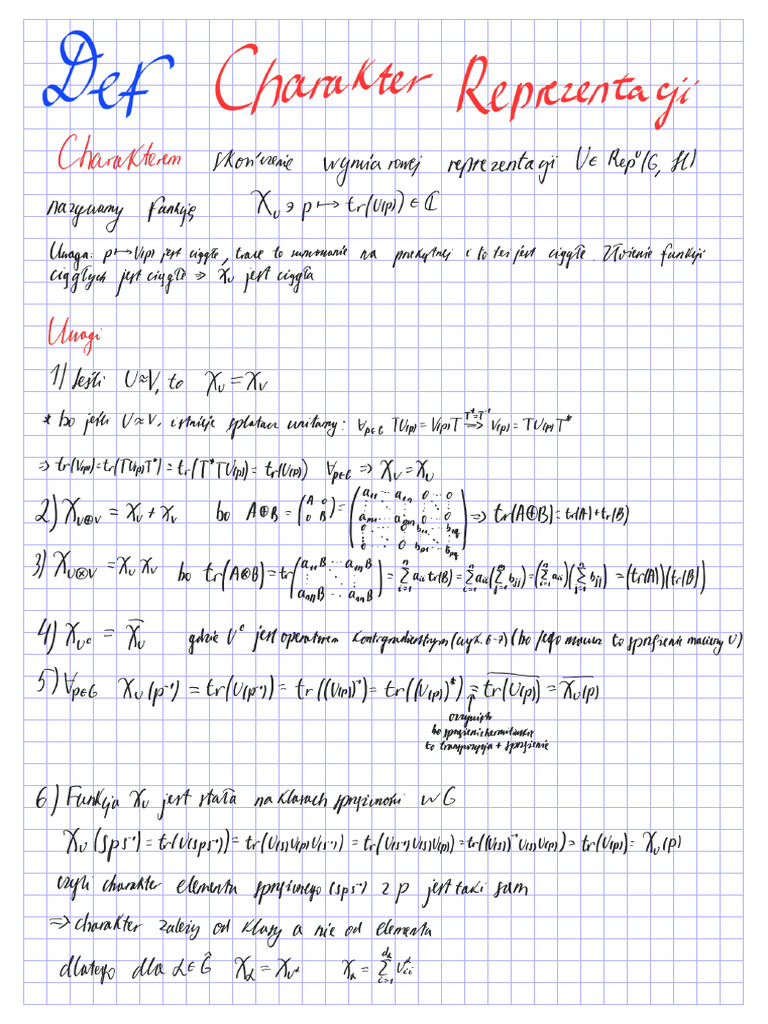 Def Charakter Reprezentacji
Charakterem skończenie wymiarowej reprezentacji U ∈ Repᵁ(G, H)
nazywamy funkcję X_U ∋ p ↦ tr(U(p)) ∈ ℂ
Uwaga: p ↦ U(p) jest ciągłe, trace to sumowanie na przekątnej i to też jest ciągłe. Złożenie funkcji
ciągłych jest ciągłe ⇒ X_U jest ciągła
Uwagi
1) Jeśli U≈V, to X_U = X_V
* bo jeśli U≈V, istnieje splatacz unitarny: ∀_{p∈G} TU(p) = V(p)T ⇒^{T*=T⁻¹} V(p) = TU(p)T*
⇒ tr(V(p)) = tr(TU(p)T*) = tr(T*TU(p)) = tr(U(p)) ∀_{p∈G} ⇒ X_U = X_U
2) X_{U⊕V} = X_U + X_V bo A⊕B = (A 0 0 B) = (a₁₁ ⋯ a₁ₙ 0 ⋯ 0 ⋮ 0 ⋯ 0) ⇒ tr(A⊕B) = tr(A)+tr(B)
3) X_{U⊗V} = X_U X_V bo tr(A⊗B) = tr(a₁₁B ⋯ a₁ₙB ⋮ ⋱ ⋮ aₙ₁B ⋯ aₙₙB) = Σ_{i=1}^n a_{ii} tr(B) = Σ_{i=1}^n a_{ii}(Σ_{j=1}^m b_{jj}) = (Σ_{i=1}^n a_{ii})(Σ_{j=1}^m b_{jj}) = (tr(A))(tr(B))
4) X_{Uᶜ} = \overline{X_U} gdzie Uᶜ jest operatorem kontrgradientnym (wyk. 6-7) (bo jego macierz to sprzężenie macierzy U)
5) ∀_{p∈G} X_U(p⁻¹) = tr(U(p⁻¹)) = tr((U(p))⁻¹) = tr((U(p))*) = \overline{tr(U(p))} = \overline{X_U(p)}
↑
oczywiste
bo sprzężenie hermitowskie
to transpozycja + sprzężenie
6) Funkcja X_U jest stała na klasach sprzężoności w G
X_U(sps⁻¹) = tr(U(sps⁻¹)) = tr(U(s)U(p)U(s⁻¹)) = tr(U(s⁻¹)U(s)U(p)) = tr((U(s))⁻¹U(s)U(p)) = tr(U(p)) = X_U(p)
czyli charakter elementu sprzężonego (sps⁻¹) z p jest taki sam
⇒ charakter zależy od klasy a nie od elementu
dlatego dla α∈Ĝ X_α = X_{U^α} X_α = Σ_{i=1}^{d_α} U^α_{ii}